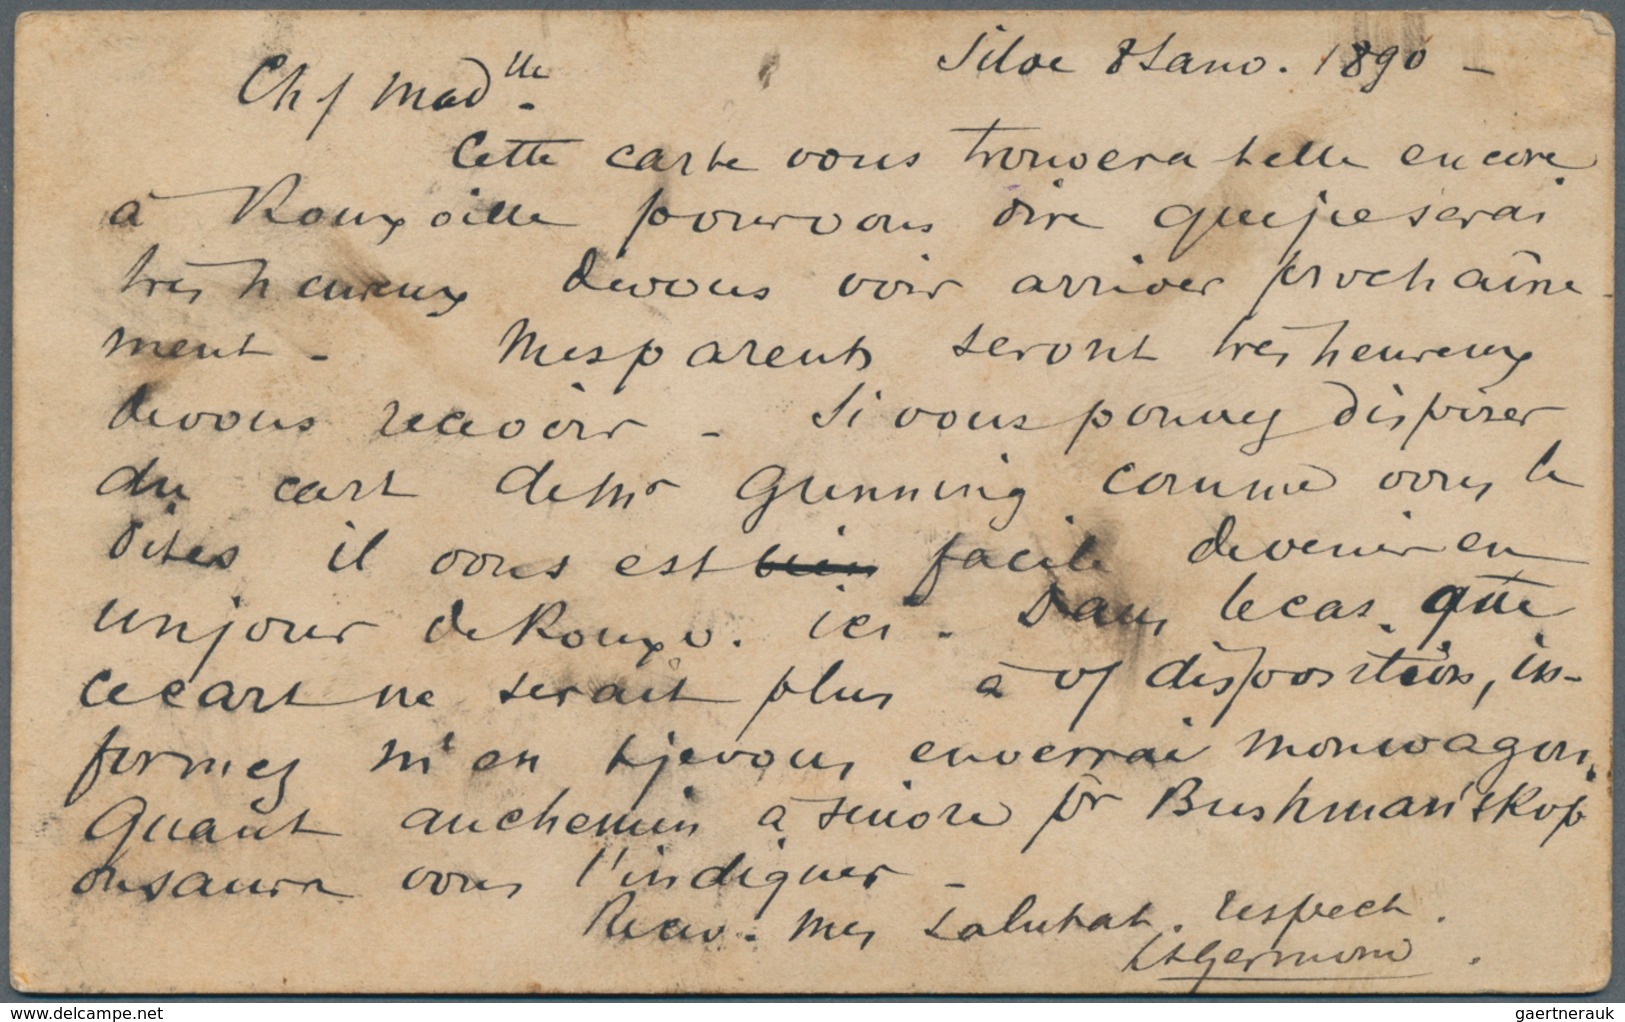 Siloe 8 Janv. 1890 –
Ch/ Mad^lle.
Cette carte vous trouvera telle encore
à Rouxville pour vous dire que je serai
très heureux de vous voir arriver prochaine-
ment – Mes parents seront très heureux
de vous recevoir – Si vous pouvez disposer
du cart de Mr Gunning comme vous le
dites il vous est bien facile de venir en
un jour de Rouxv. ici. Dans le cas que
ce cart ne serait plus à v/ disposition, in-
formez m'en & je vous enverrai mon wagon.
Quant au chemin à suivre pr Bushman's Kop
on saura vous l'indiquer –
Recev. mes salutat. respect.
Germond.
delcampe.net
gaertnerauk